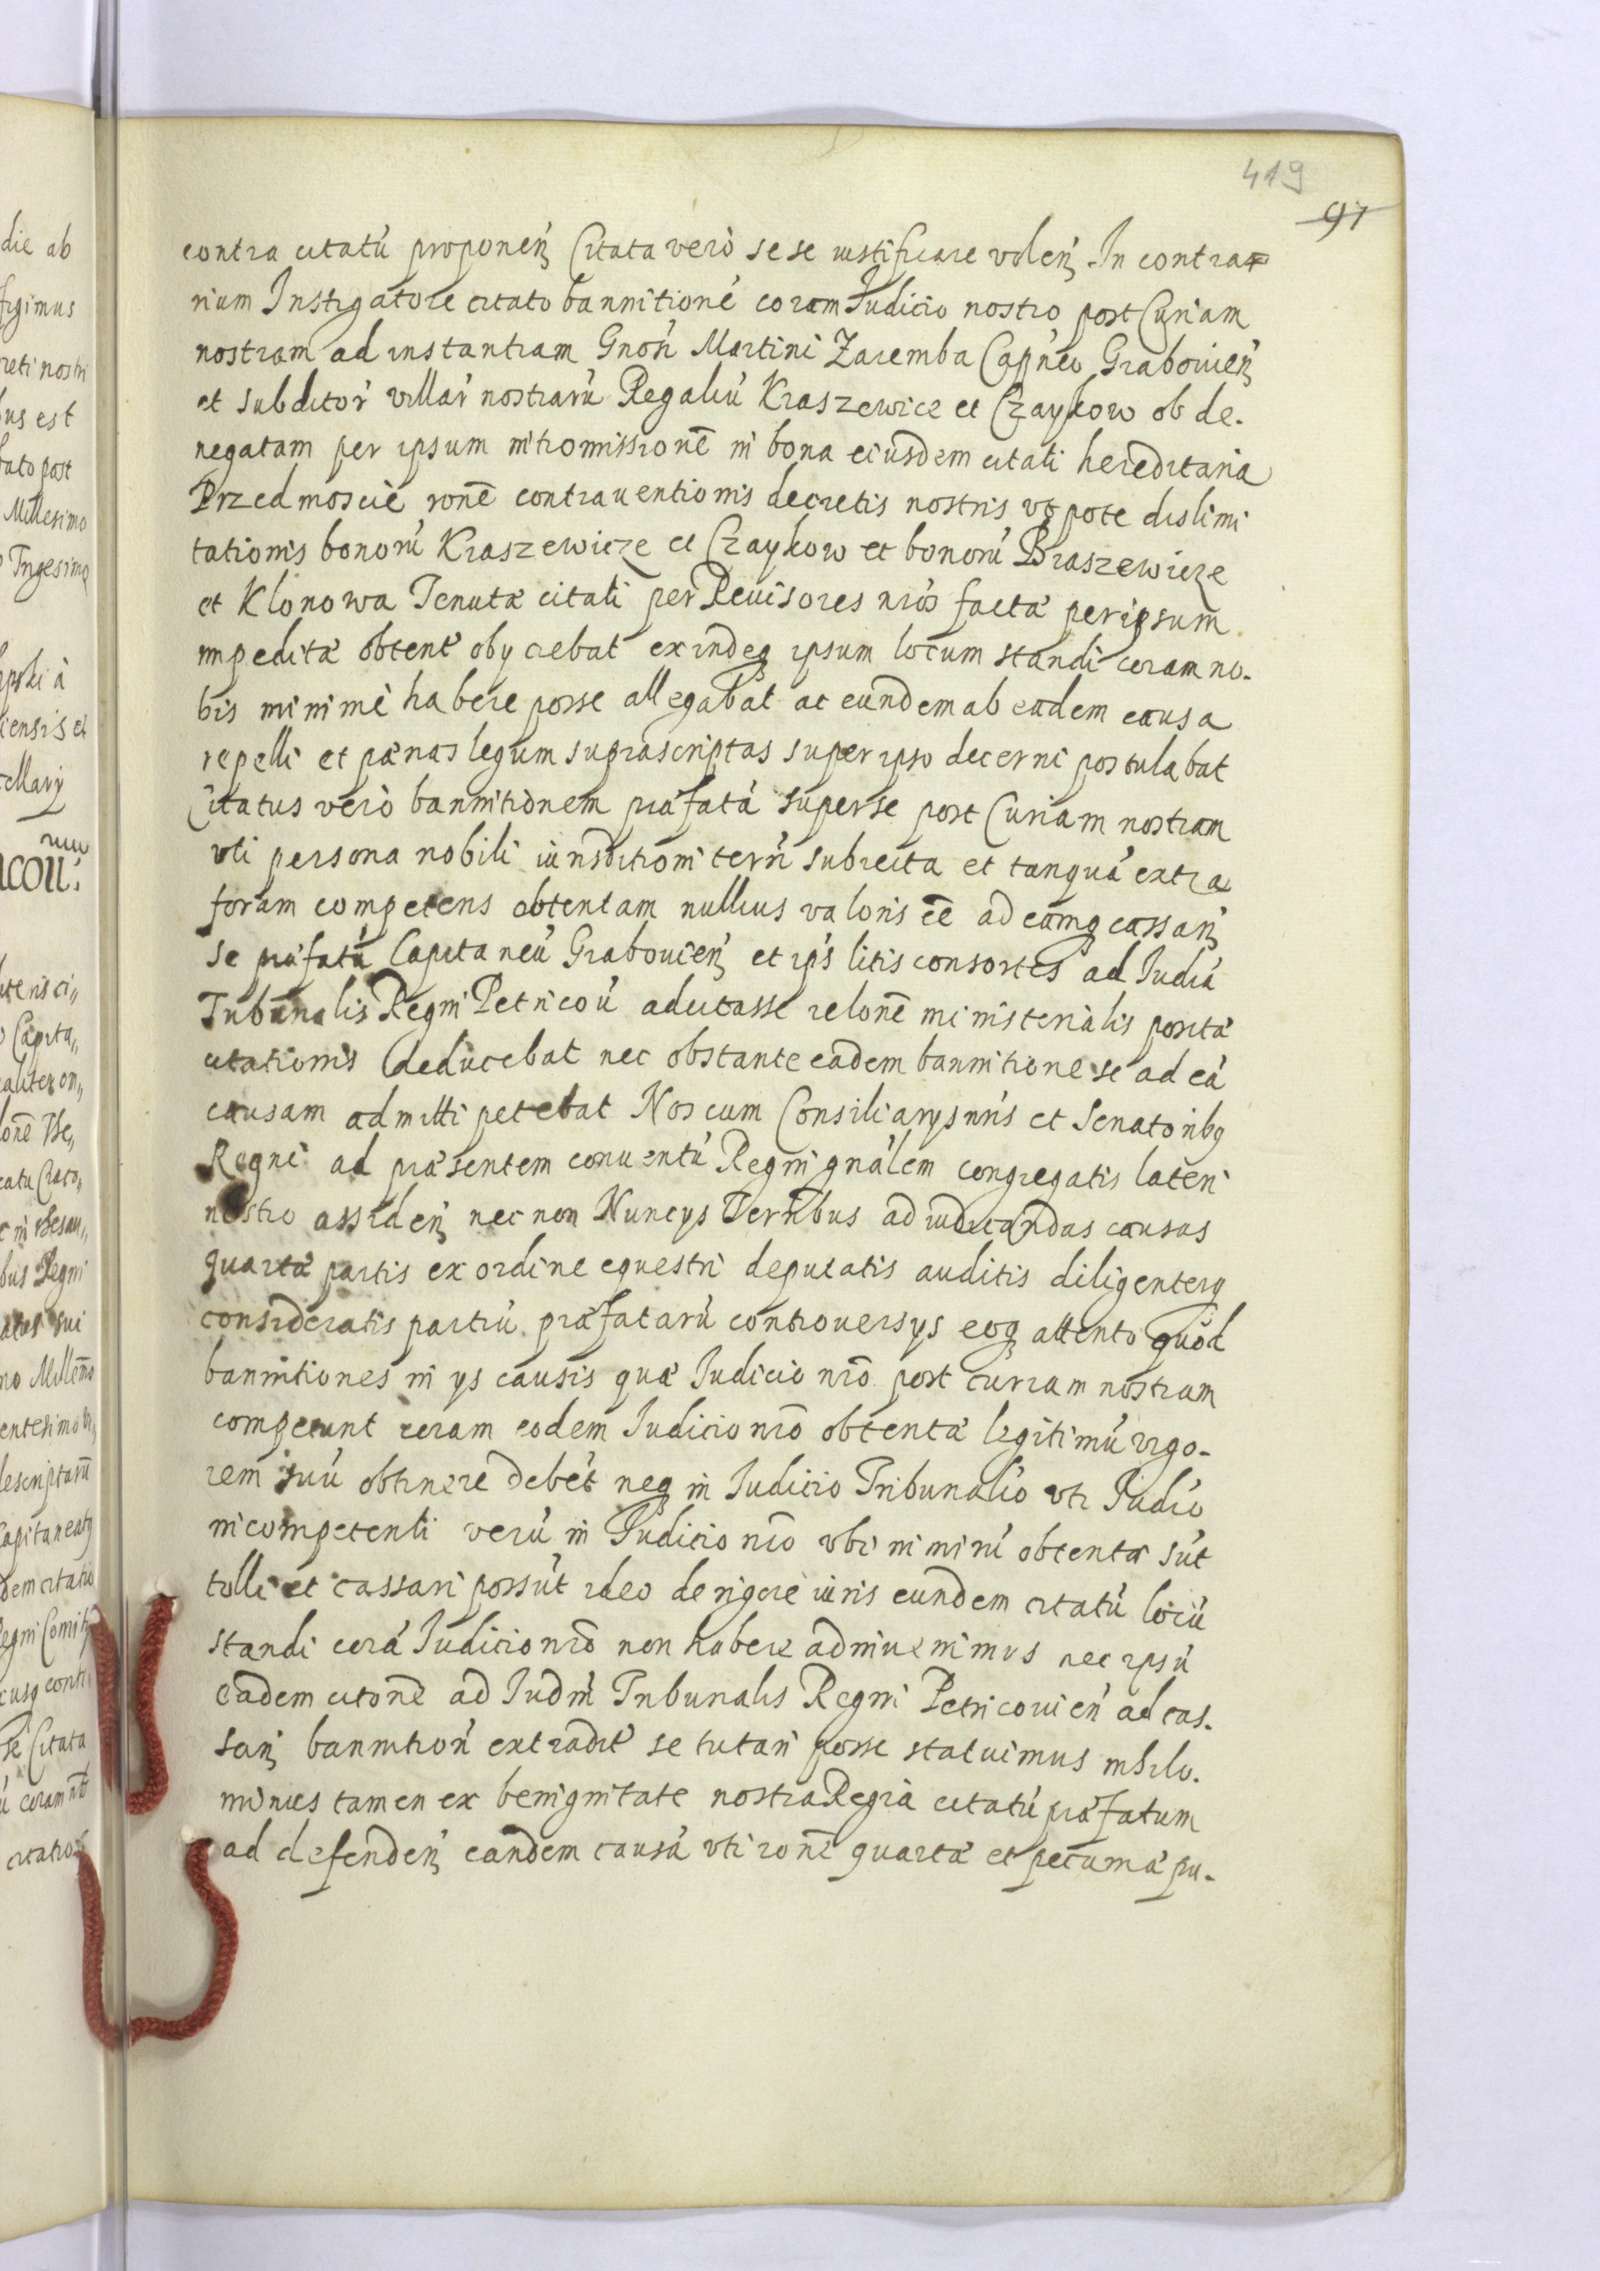 419
97
contra citatú proponeń Citata verò sese iustificare voleń In contra=
rium Instigatore citato bannitioné coram Iudicio nostro post Curiam
nostram ad instantiam Gnoń Martini Zaremba Capnei Grabouień
et subditor villar nostrarú Regaliú Kraszewice et Czaykow ob de-
negatam per ipsum intromissionē in bona eiusdem citati hereditaria
Przedmoscie ronē contrauentionis decretis nostris vt pote dislimi
tationis bonorú Kraszewicze et Czaykow et bonorú Braszewicze
et Klonowa Tenutæ citati per Reuisores nrós factæ per ipsum
impeditæ obtent obyciebat exindeq ipsum locum standi coram no-
bis minimè habere posse allegabat ac eundem ab eadem causa
repelli et pænas legum suprascriptas super ipso decerni postulabat
Citatus verò bannitionem præfatá super se post Curiam nostram
vti persona nobili iurisditioni terrń subiecta et tanquá extra
forum competens obtentam nullius valoris eē ad eamq cassań
se præfatú Capitaneú Grabouień et ips litis consortes ad Iudiú
Tribunalis Regni Petricoú adcitasse relonē ministerialis positæ
citationis deducebat nec obstante eadem bannitione se ad eá
causam admitti petebat Nos cum Consiliarys nrís et Senatoribq
Regni ad præsentem conuentú Regni gnálem congregatis lateri
nostro assideń nec non Nuncys Terrībus ad iudicandas causas
quartæ partis ex ordine equestri deputatis auditis diligenterq
consideratis partiú præfatarú controuersys eoq attento quòd
bannitiones in ys causis quæ Iudicio nrō post curiam nostram
competunt coram eodem Iudicio nrō obtentæ legitimú vigo-
rem suú obtinere debét neq in Iudicio Tribunalio vti Iudio
incompetenti verú in Iudicio nrō vbi nimirú obtentæ sút
tolli et cassari possút ideo de rigore iuris eundem citatú locú
standi corá Iudicio nrō non habere adinuenimus nec ipsú
eadem citonē ad Iudm Tribunalis Regni Petricouień ad cas-
sań bannitioń extradit se tutari posse statuimus nihilo-
minus tamen ex benignitate nostra Regia citatú præfatum
ad defendeń eandem causá vti ronē quartæ et pecuniæ pu-